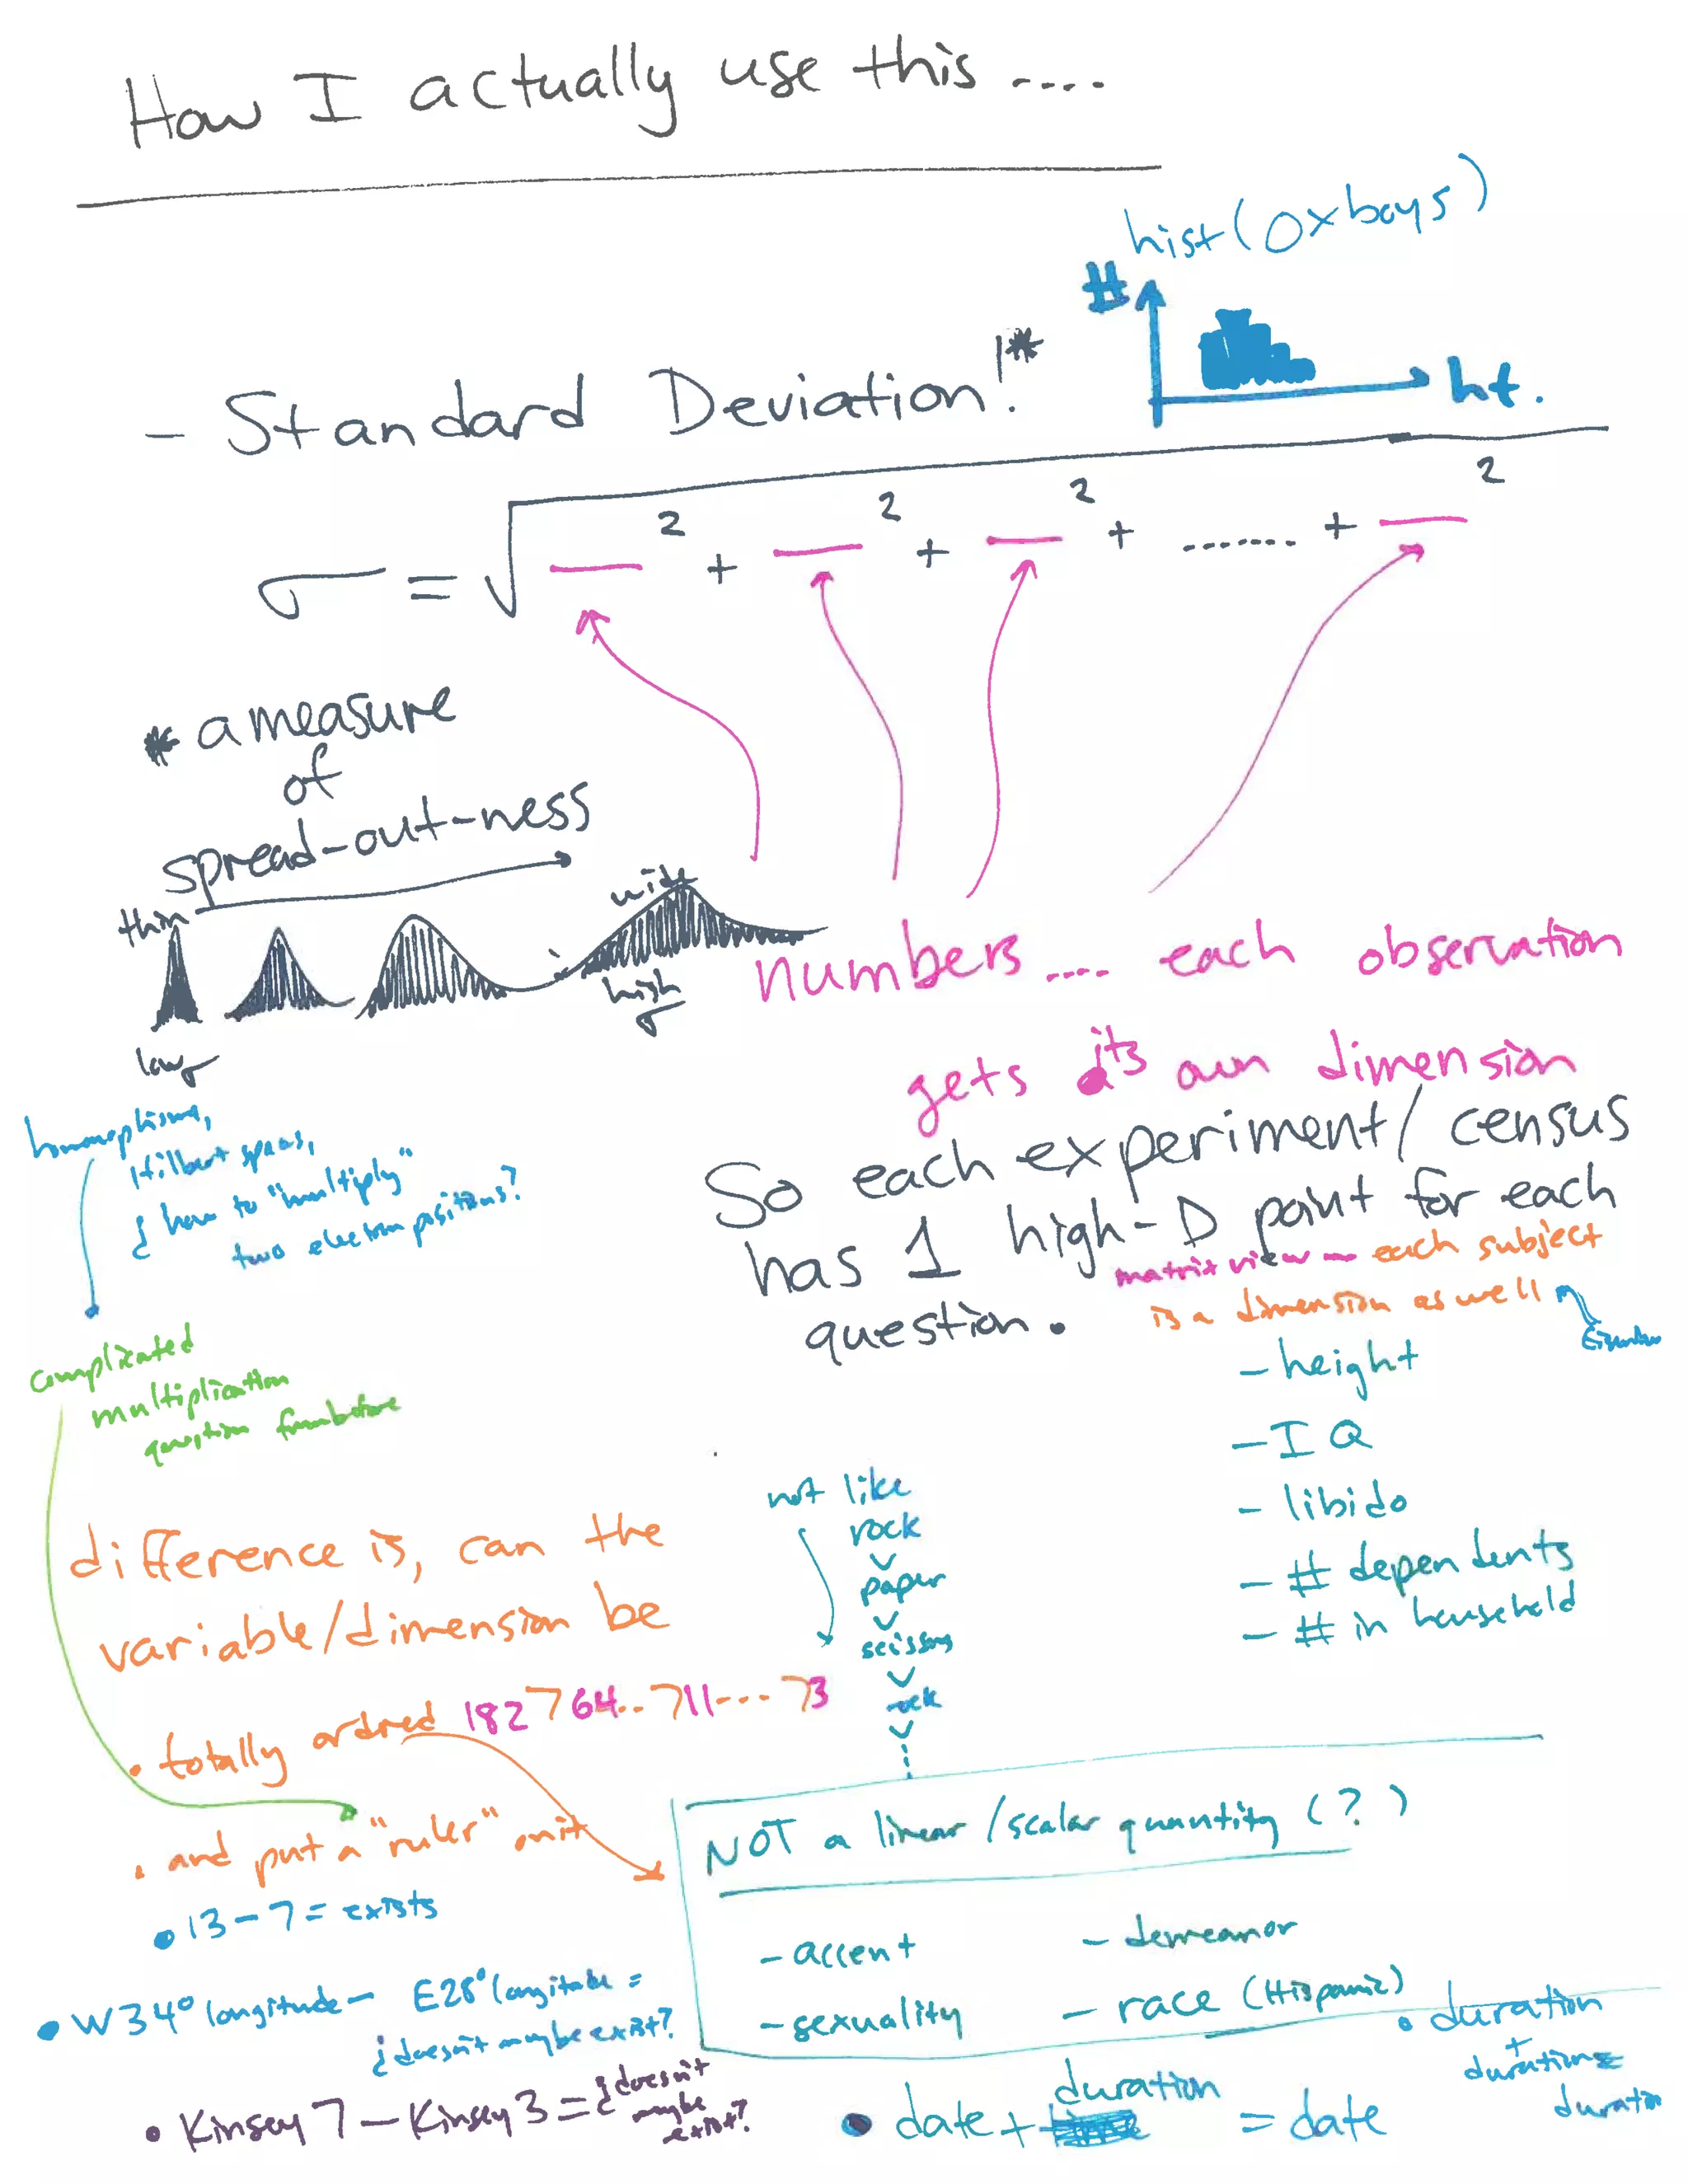 How I actually use this ....
hist(Oxboys)
#
ht.
- Standard Deviation!*
σ = √ 2 + 2 + 2 + ....... + 2
* a measure
of
spread-out-ness
thin
wide
low σ
high
σ
numbers .... each observation
gets its own dimension
So each experiment/census
has 1 high-D point for each
question.
matrix view — each subject
is a dimension as well
- height
- IQ
- libido
- # dependents
- # in household
Hilbert spaces,
¿ how to "multiply"
two electron positions?
complicated
multiplication
question from before
difference is, can the
variable/dimension be
• totally ordred 182 764.. 711... 73
• and put a "ruler" on it
• 13 - 7 = exists
• W34° longitude - E28° longitude =
¿ doesn't maybe exist?
• Kinsey 7 - Kinsey 3 = ¿ doesn't
maybe
exist?
not like
rock
v
paper
v
scissors
v
rock
v
NOT a linear/scalar quantity (?)
- accent
- demeanor
- sexuality
- race (Hispanic)
• duration
+
duration =
duratio
• date + duration = date